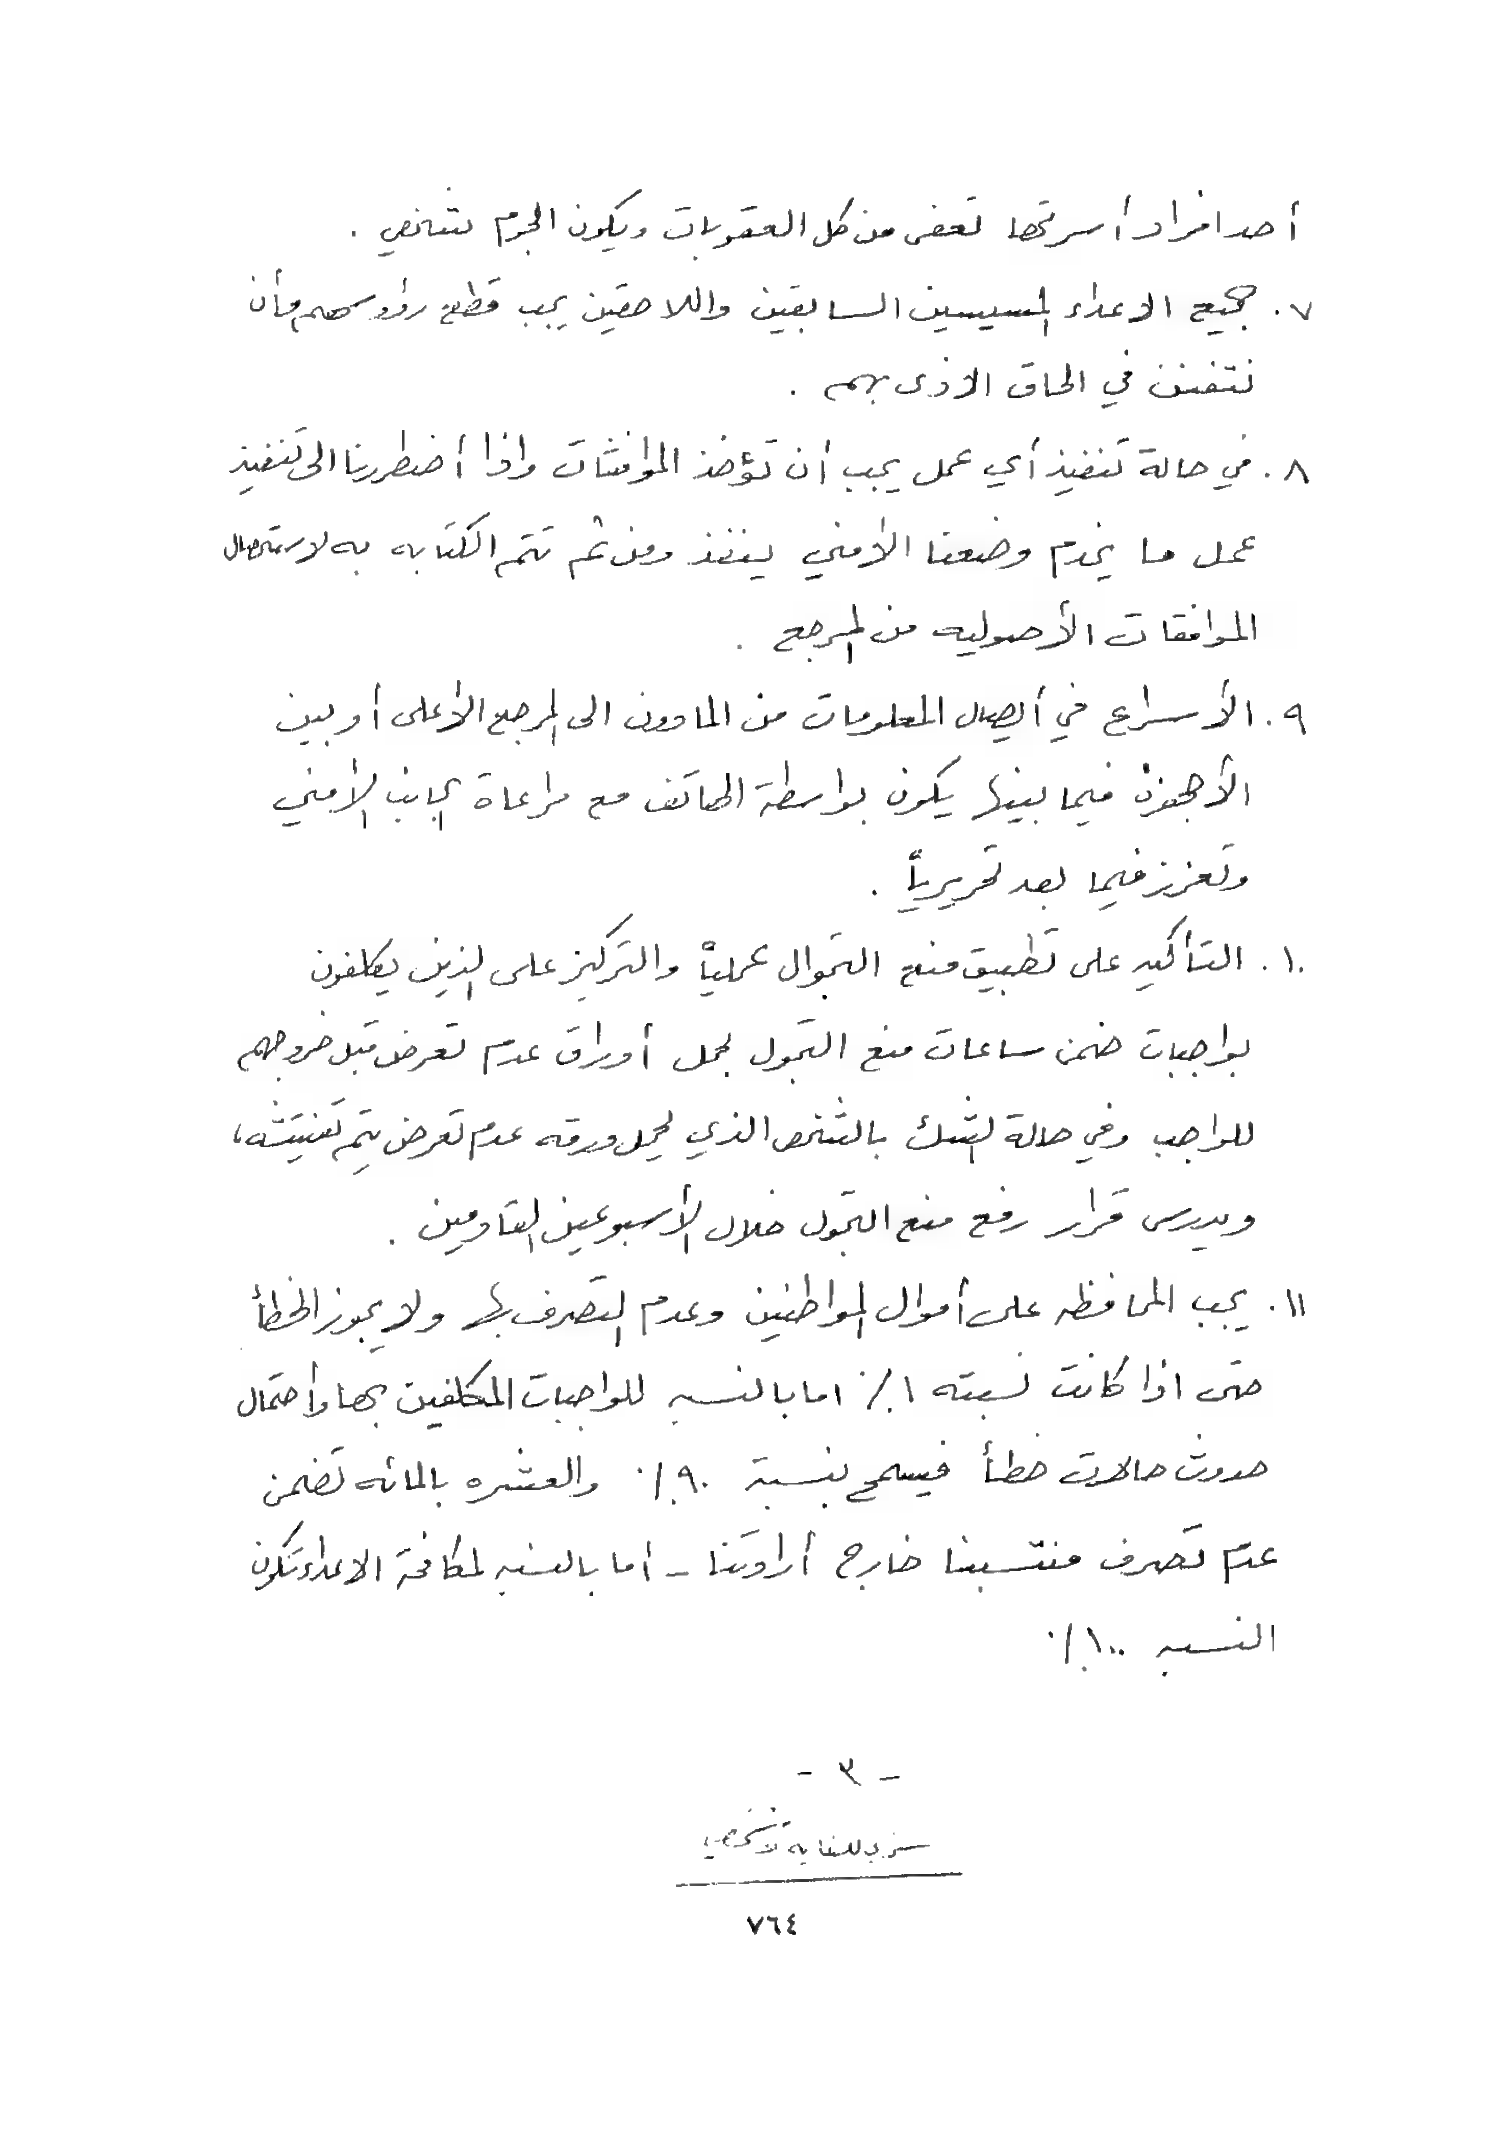 أحد افراد أسرتها تعفى من كل العقوبات ويكون الجرم شخصي .
٧. جميع الاعداء المسيسين السابقين واللاحقين يجب قطع رؤوسهم وأن
نتفنن في الحاق الاذى بهم .
٨. في حالة تنفيذ أي عمل يجب أن تؤخذ الموافقات واذا أضطررنا الى تنفيذ
عمل ما يخدم وضعنا الأمني ينفذ ومن ثم تتم الكتابه به لاستحصال
الموافقات الأصوليه من المرجع .
٩. الأسراع في أيصال المعلومات من المادون الى المرجع الأعلى أو بين
الأجهزة فيما بينها يكون بواسطة الهاتف مع مراعاة الجانب الأمني
وتعزز فيما بعد تحريرياً .
١٠. التأكيد على تطبيق منع التجوال عملياً والتركيز على الذين يكلفون
بواجبات ضمن ساعات منع التجول بحمل أوراق عدم تعرض قبل خروجهم
للواجب وفي حالة الشك بالشخص الذي يحمل ورقه عدم تعرض يتم تفتيشه ،
ويدرس قرار رفع منع التجول خلال الأسبوعين القادمين .
١١. يجب المحافظه على أموال المواطنين وعدم التصرف بها ولا يجوز الخطأ
حتى اذا كانت نسبته ١٪ اما بالنسبه للواجبات المكلفين بها وأحتمال
حدوث حالات خطأ فيسمح بنسبة ٩٠٪ والعشره بالمائه تضمن
عدم تصرف منتسبنا خارج أرادتنا - أما بالنسبه لمكافحة الاعداء تكون
النسبه ١٠٠٪
- ٣ -
سري للغاية وشخصي
٧٦٤